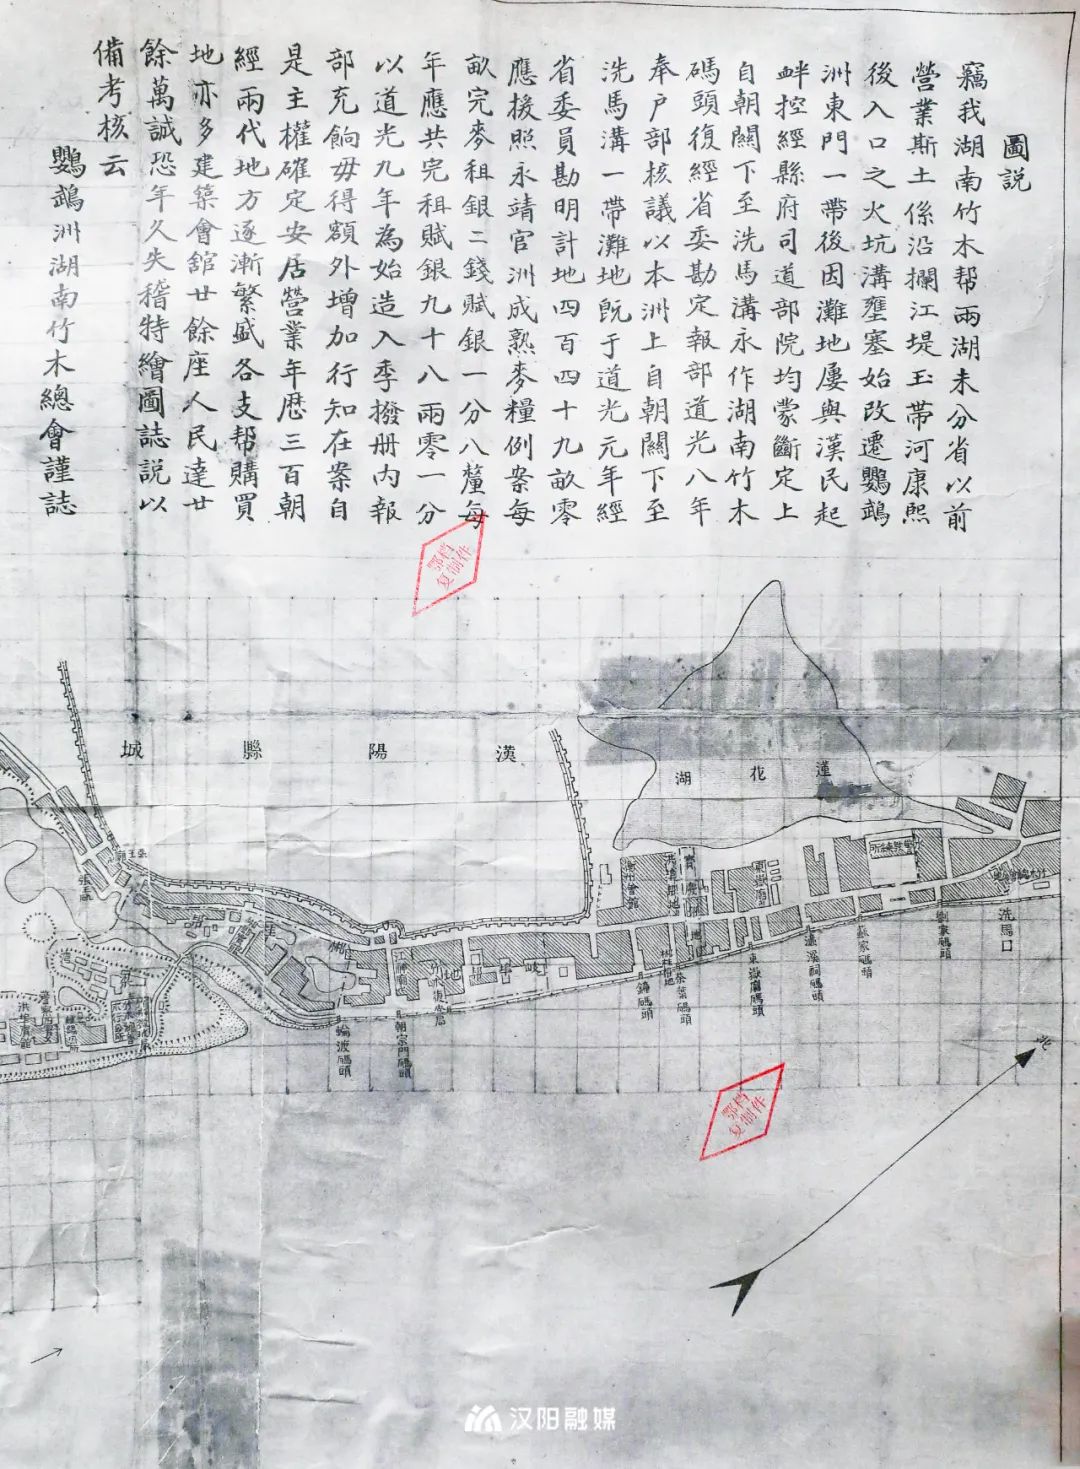 圖説
竊我湖南竹木帮兩湖未分省以前
營業斯土係沿攔江堤玉帶河康熙
後入口之火坑溝壅塞始改遷鸚鵡
洲東門一帶後因灘地屢與漢民起
衅控經縣府司道部院均蒙斷定上
自朝關下至洗馬溝永作湖南竹木
碼頭復經省委勘定報部道光八年
奉户部核議以本洲上自朝關下至
洗馬溝一帶灘地既于道光元年經
省委員勘明計地四百四十九畝零
應援照永靖官洲成熟麥糧例案每
畝完麥租銀二錢賦銀一分八釐每
年應共完租賦銀九十八兩零一分
以道光九年為始造入季撥册内報
部充餉毋得額外增加行知在案自
是主權確定安居營業年歷三百朝
經兩代地方逐漸繁盛各支帮購買
地亦多建築會舘廿餘座人民達廿
餘萬誠恐年久失稽特繪圖誌説以
備考核云
鸚鵡洲湖南竹木總會謹誌
鄂档
复制件
漢陽縣城
蓮花湖
洗馬口
劉家碼頭
蕭家碼頭
東嶽廟碼頭
茶葉碼頭
朝宗門碼頭
輪渡碼頭
北
鄂档
复制件
汉阳融媒